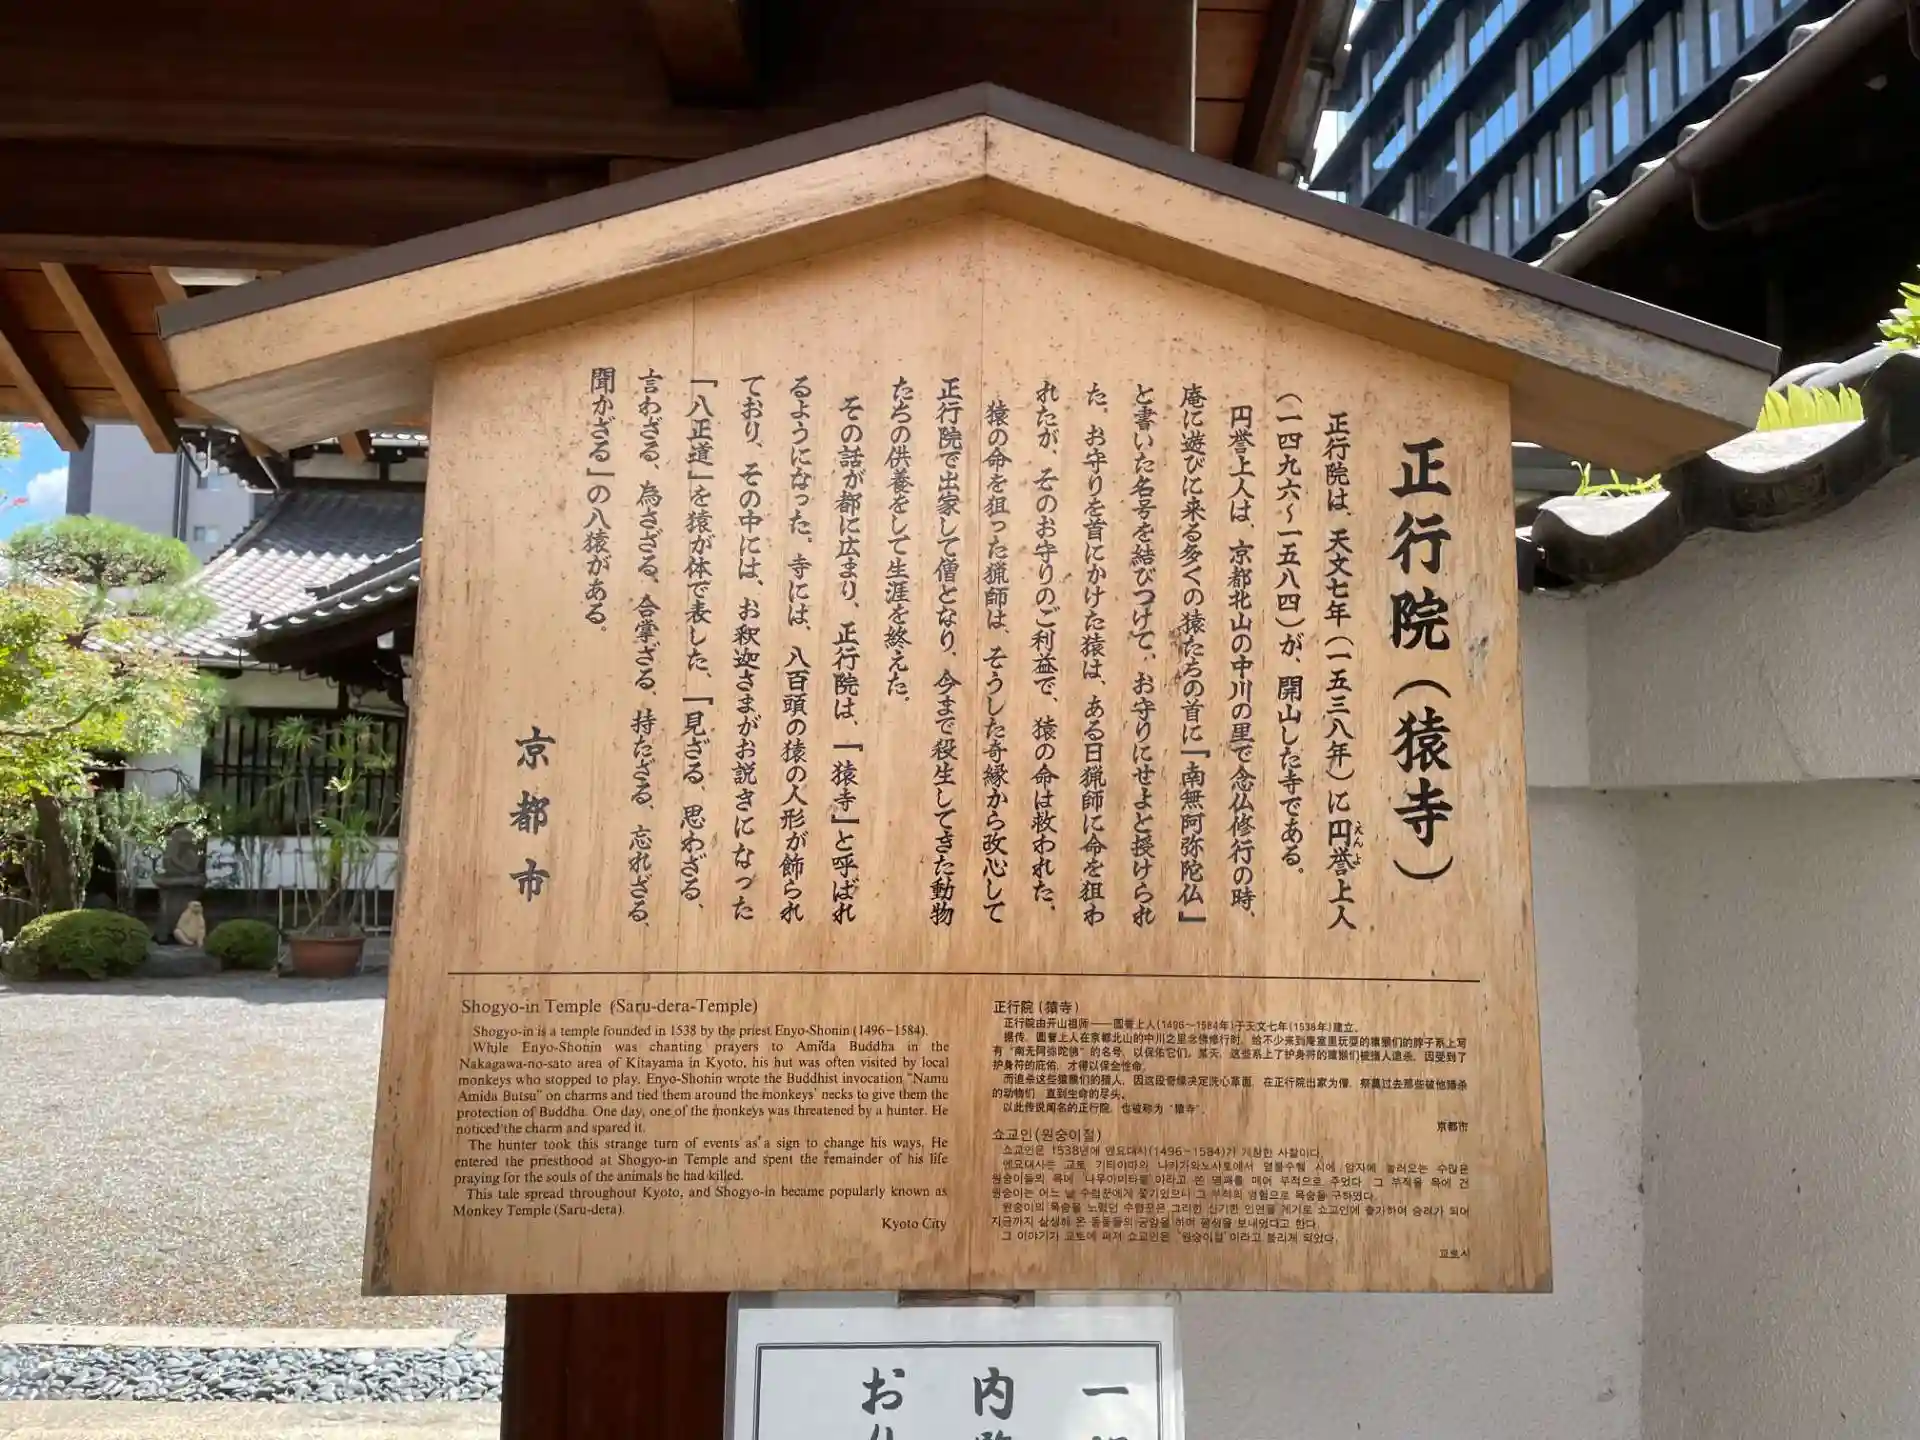 正行院（猿寺）
正行院は、天文七年（一五三八年）に円誉上人
えんよ
（一四九六〜一五八四）が、開山した寺である。
円誉上人は、京都北山の中川の里で念仏修行の時、
庵に遊びに来る多くの猿たちの首に『南無阿弥陀仏』
と書いた名号を結びつけて、お守りにせよと授けられ
た。お守りを首にかけた猿は、ある日猟師に命を狙わ
れたが、そのお守りのご利益で、猿の命は救われた。
猿の命を狙った猟師は、そうした奇縁から改心して
正行院で出家して僧となり、今まで殺生してきた動物
たちの供養をして生涯を終えた。
その話が都に広まり、正行院は、「猿寺」と呼ばれ
るようになった。寺には、八百頭の猿の人形が飾られ
ており、その中には、お釈迦さまがお説きになった
「八正道」を猿が体で表した、『見ざる、思わざる、
言わざる、為さざる、合掌ざる、持たざる、忘れざる、
聞かざる』の八猿がある。
京都市
Shogyo-in Temple (Saru-dera-Temple)
Shogyo-in is a temple founded in 1538 by the priest Enyo-Shonin (1496–1584).
While Enyo-Shonin was chanting prayers to Amida Buddha in the
Nakagawa-no-sato area of Kitayama in Kyoto, his hut was often visited by local
monkeys who stopped to play. Enyo-Shonin wrote the Buddhist invocation "Namu
Amida Butsu" on charms and tied them around the monkeys' necks to give them the
protection of Buddha. One day, one of the monkeys was threatened by a hunter. He
noticed the charm and spared it.
The hunter took this strange turn of events as a sign to change his ways. He
entered the priesthood at Shogyo-in Temple and spent the remainder of his life
praying for the souls of the animals he had killed.
This tale spread throughout Kyoto, and Shogyo-in became popularly known as
Monkey Temple (Saru-dera).
Kyoto City
正行院（猿寺）
正行院由开山祖师——圆誉上人(1496〜1584年)于天文七年(1538年)建立。
据传，圆誉上人在京都北山的中川之里念佛修行时，给不少来到庵室里玩耍的猿猴们的脖子系上写
有"南无阿弥陀佛"的名号，以保佑它们。某天，这些系上了护身符的猿猴们被猎人追杀，因受到了
护身符的庇佑，才得以保全性命。
而追杀这些猿猴们的猎人，因这段奇缘决定洗心革面，在正行院出家为僧，祭奠过去那些被他猎杀
的动物们，直到生命的尽头。
以此传说闻名的正行院，也被称为"猿寺"。
京都市
쇼교인(원숭이절)
쇼교인은 1538년에 엔요대사(1496~1584)가 개창한 사찰이다.
엔요대사는 교토 기타야마의 나카가와노사토에서 염불수행 시에 암자에 놀러오는 수많은
원숭이들의 목에 '나무아미타불'이라고 쓴 명패를 매어 부적으로 주었다. 그 부적을 목에 건
원숭이는 어느 날 수렵꾼에게 쫓기었으나 그 부적의 영험으로 목숨을 구하였다.
원숭이의 목숨을 노렸던 수렵꾼은 그러한 신기한 인연을 계기로 쇼교인에 출가하여 승려가 되어
지금까지 살생해 온 동물들의 공양을 하며 평생을 보내었다고 한다.
그 이야기가 교토에 퍼져 쇼교인은 '원숭이절'이라고 불리게 되었다.
교토시
一
内
お